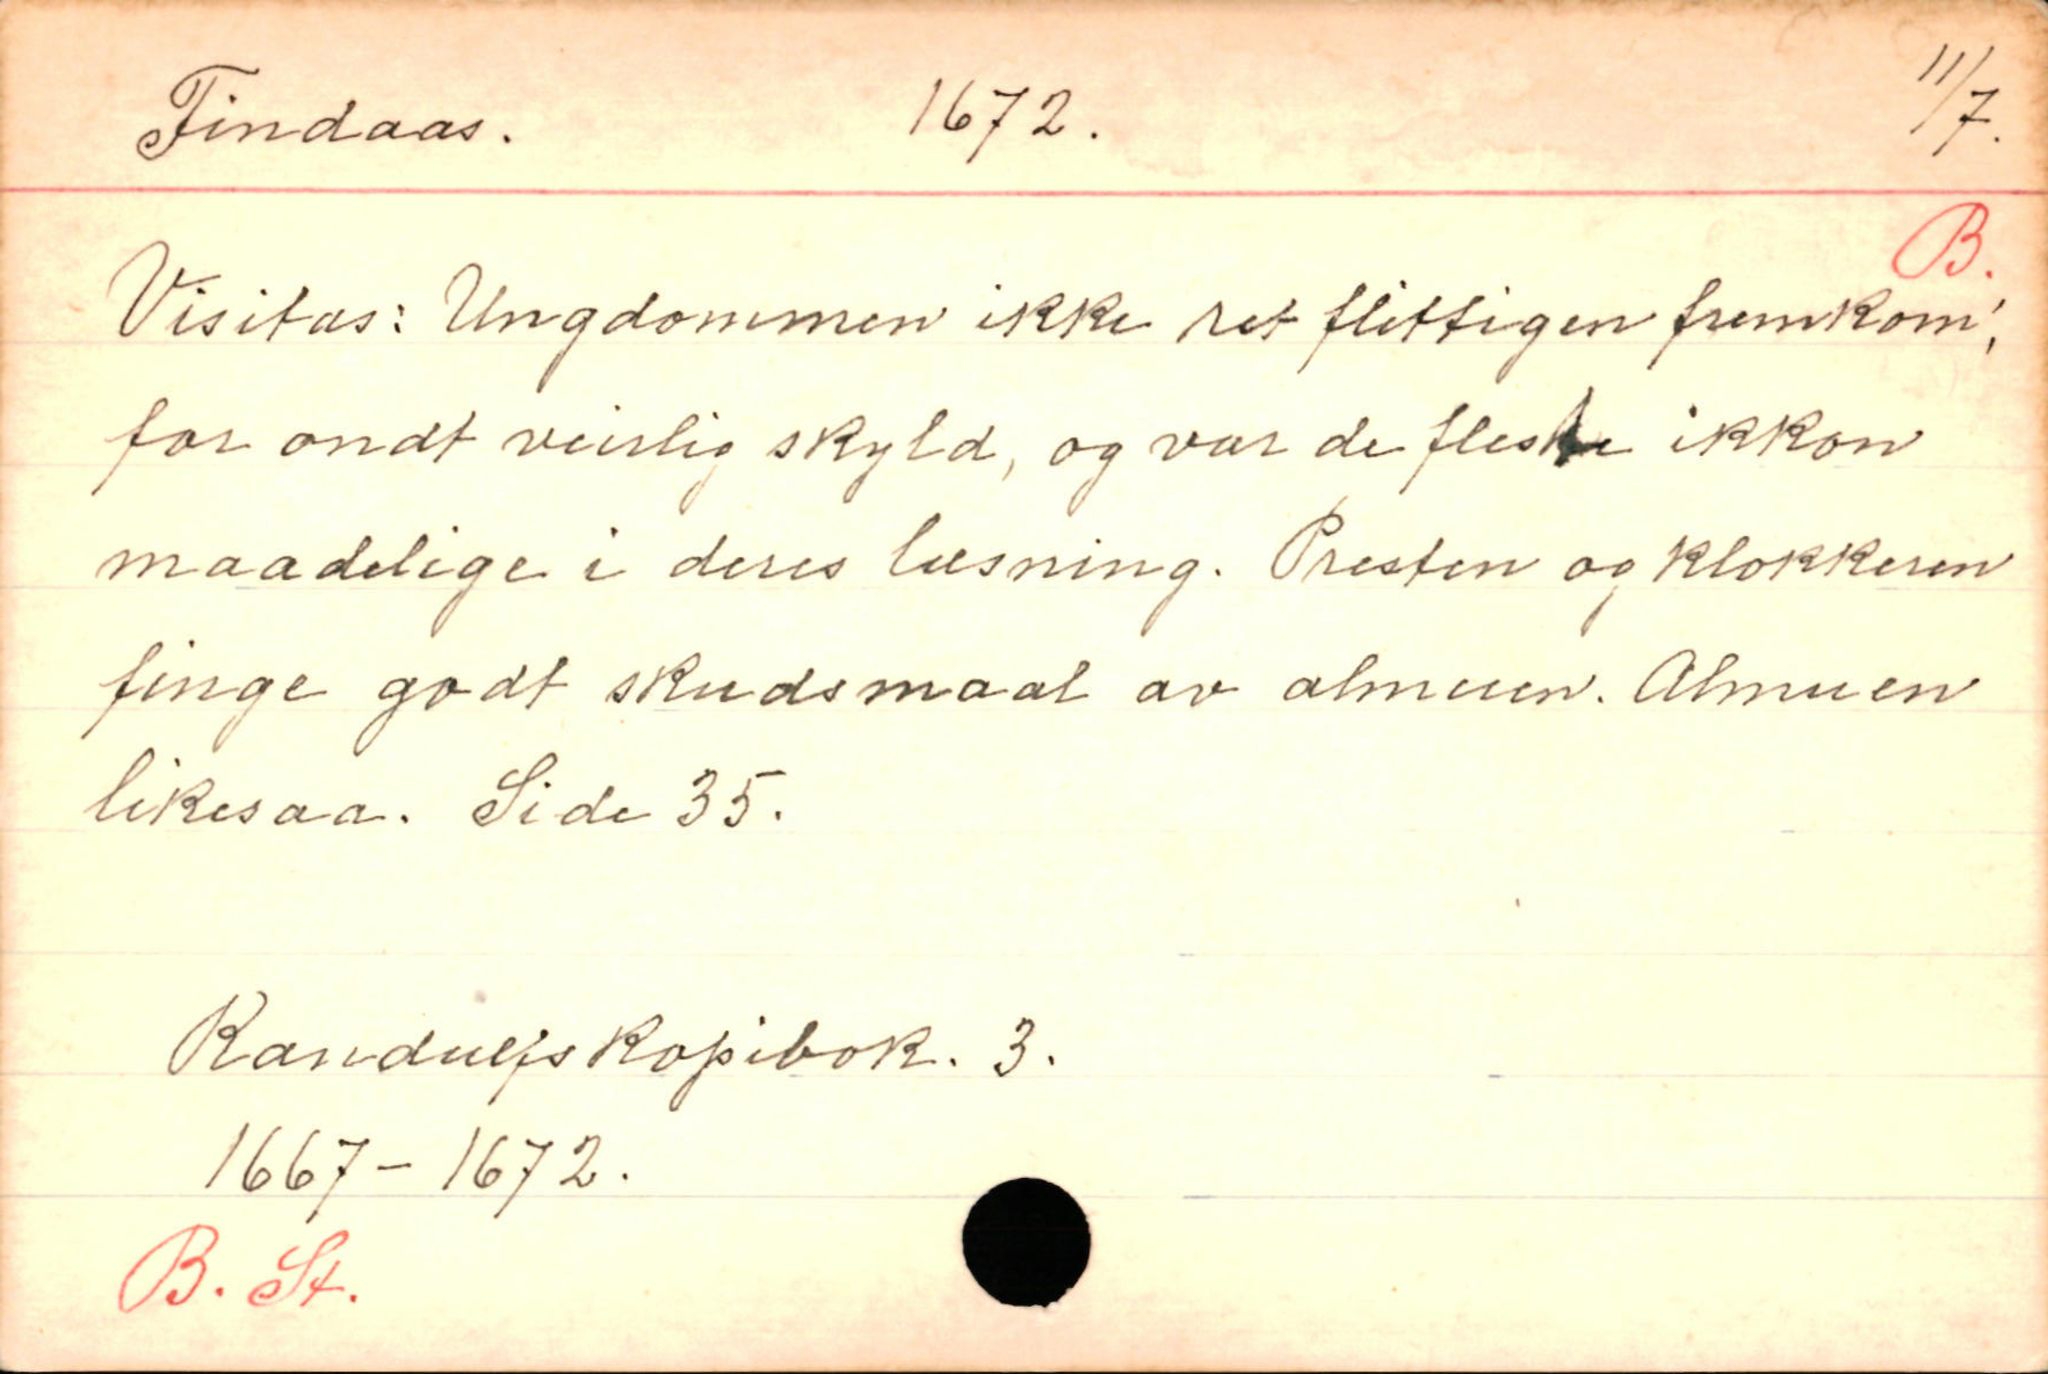 Findaas. 1672. 11/7.
B.
Visitas: Ungdommen ikke ret flittigen fremkom,
for ondt veirlig skyld, og var de fleste ikkon
maadelige i deres læsning. Presten og klokkeren
finge godt skudsmaal av almuen. Almuen
likesaa. Side 35.
Randulfs kopibok. 3.
1667-1672.
B. St.